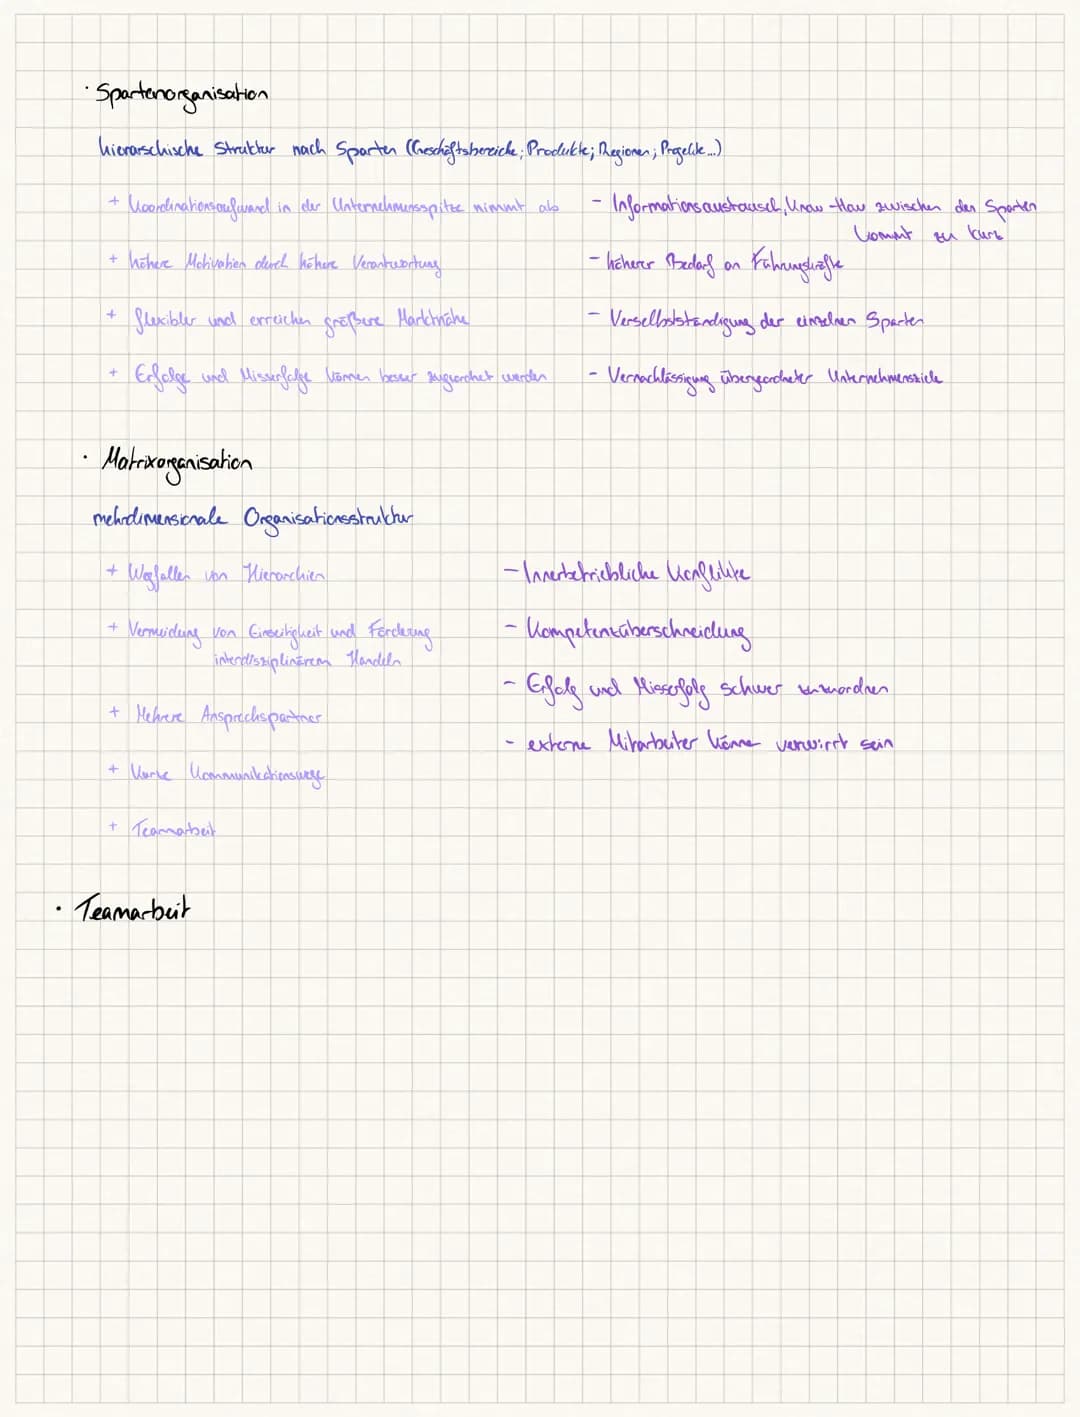 · Spartenorganisation
hierarschische Struktur nach Sparten (Geschäftsbereiche; Produkte; Regionen; Projekte...)
+ Koordinationsaufwand in der Unternehmensspitze nimmt ab
- Informationsaustausch, Know-How zwischen den Sparten
kommt zu kurz
+ höhere Motivation durch höhere Verantwortung
- höherer Bedarf an Führungskräfte
+ flexibler und erreichen größere Marktnähe
- Verselbstständigung der einzelnen Sparten
+ Erfolge und Misserfolge können besser zugeordnet werden
- Vernachlässigung übergeordneter Unternehmensziele
· Matrixorganisation
mehrdimensionale Organisationsstruktur
+ Wegfallen von Hierarchien
- Innerbetriebliche Konflikte
+ Vermeidung von Einseitigkeit und Förderung
interdisziplinärem Handeln
- Kompetenzüberschneidung
- Erfolg und Misserfolg schwer
+ Mehrere Ansprechspartner
- externe Mitarbeiter könne verwirrt sein
+ Kurze Kommunikationswege
+ Teamarbeit
· Teamarbeit